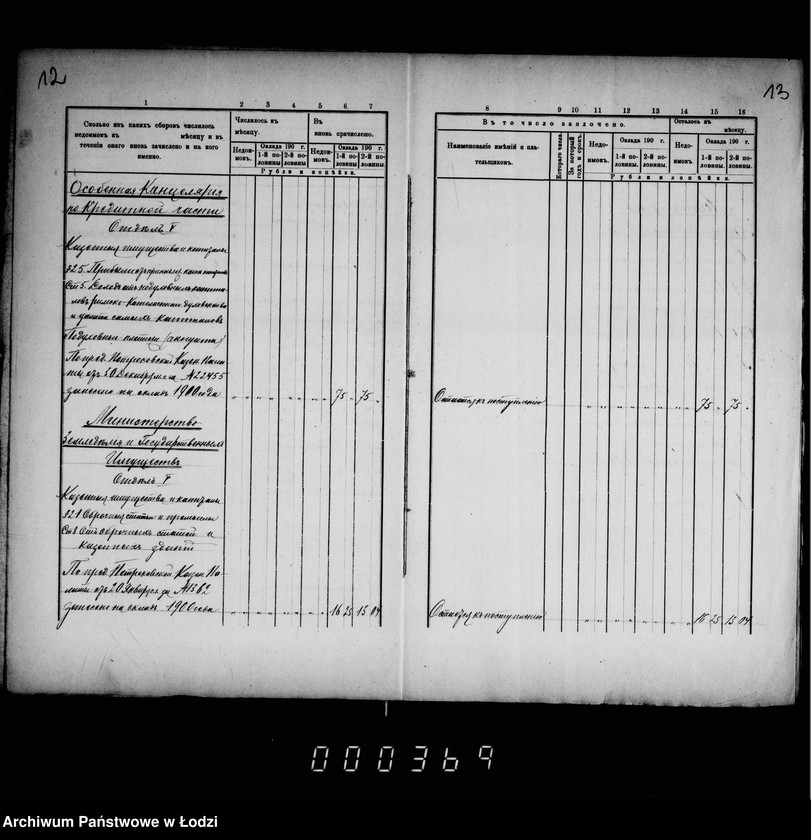 12
13
1
2 3 4 5 6 7
Сколько изъ какихъ сборовъ числилось
недоимокъ къ мѣсяцу и въ
теченіи онаго вновь зачислено и на кого
именно.
Числилось къ
мѣсяцу.
Въ
вновь причислено.
Недои-
мокъ.
Оклада 190 г.
1-й по-
ловины
2-й по-
ловины
Недои-
мокъ.
Оклада 190 г.
1-й по-
ловины
2-й по-
ловины
Рубли и копѣйки.
Особенная Канцелярія
по Кредитной части
Отдѣлъ V
Казенныя имущества и капиталы
§25. Прибыли отъ
Ст 5.
римско-Католическаго духовенства
По пред. Петроковской Казен Пала-
ты отъ 30 Декабря за №22455
занесено на окладъ 1900 года 75 75
Министерство
Земледѣлія и Государственныхъ
Имуществъ
Отдѣлъ V
Казенныя имущества и капиталы
§21 Оброчныя статьи и промыслы
Ст 8 Отъ оброчныхъ статей и
казенныхъ
По пред. Петроковской Казен Па-
латы отъ 20 Января за №1562
занесено на окладъ 1900 года 16 25 15 04
8 9 10 11 12 13 14 15 16
Въ то число заплочено.
Осталось къ
мѣсяцу.
Наименованіе имѣній и пла-
тельщиковъ.
Котораго числа.
За который
годъ и срокъ.
Недо-
имокъ.
Оклада 190 г.
1-й по-
ловины
2-й по-
ловины
Недо-
имокъ.
Оклада 190 г.
1-й по-
ловины
2-й по-
ловины
Рубли и копѣйки.
Остается къ поступленію 75 75
Остается къ поступленію 16 25 15 04
000369
Archiwum Państwowe w Łodzi